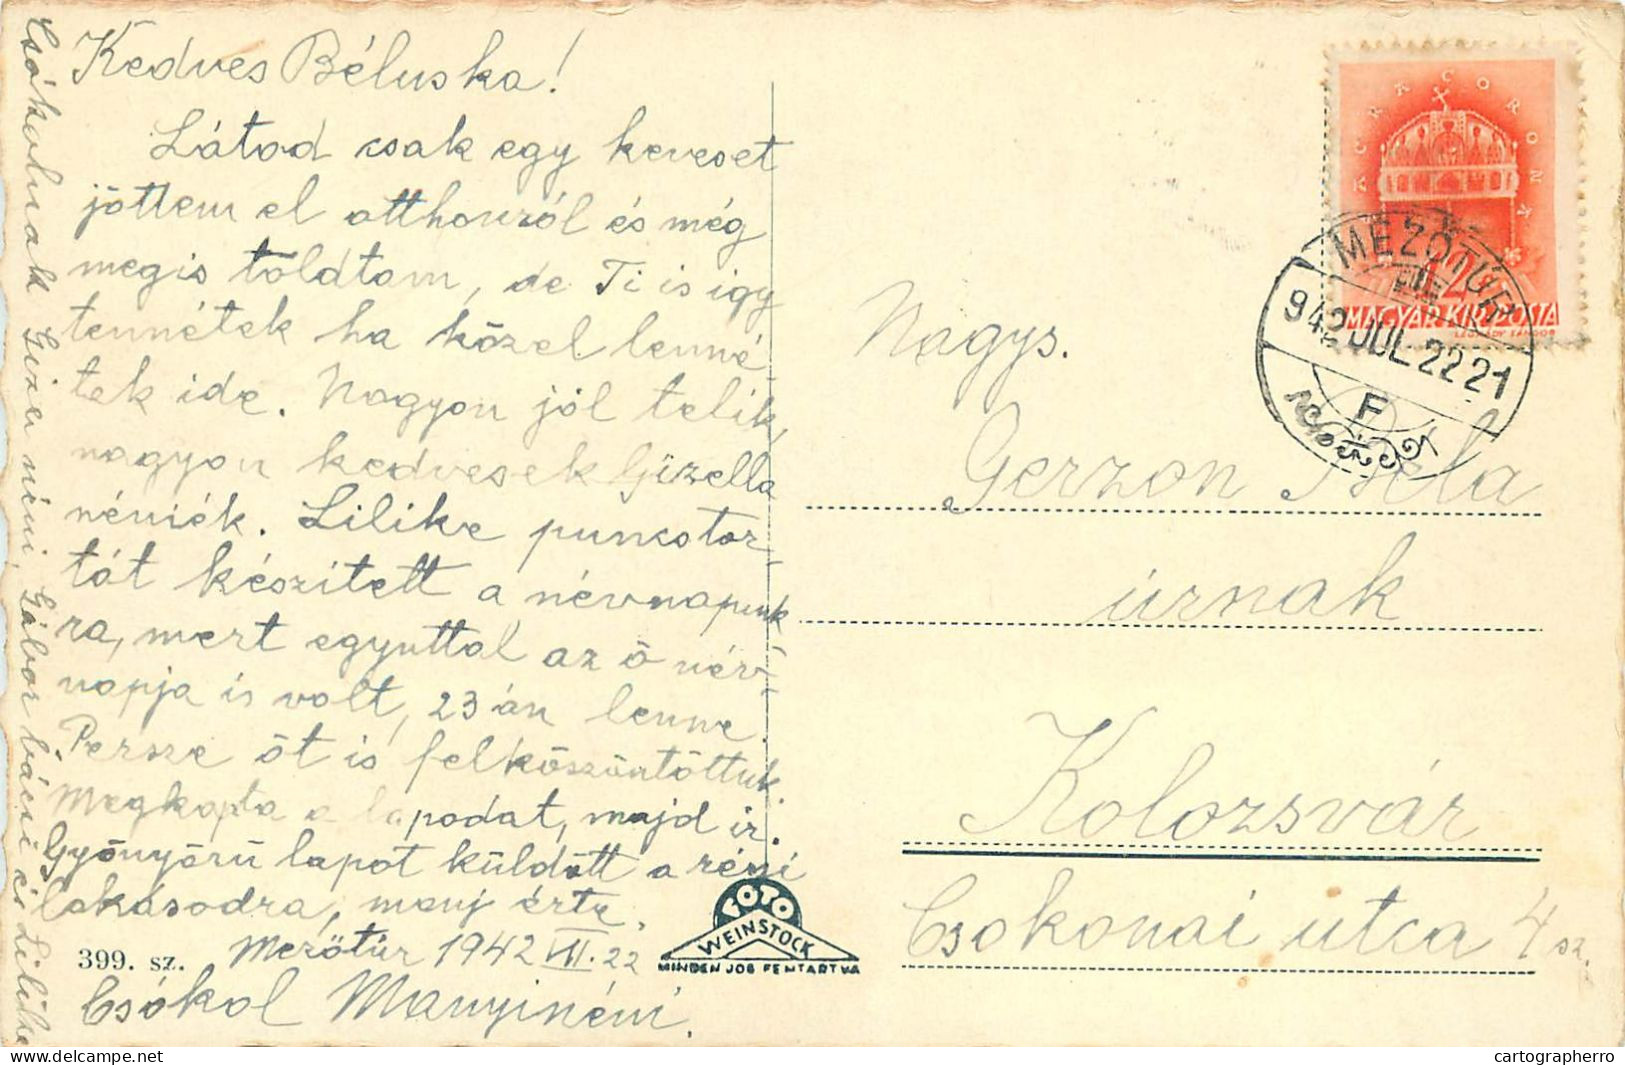 Kedves Béluska!
Látod csak egy keveset
jöttem el otthonról és még
megis toldtam, de Ti is igy
tennétek ha közel lenné-
tek ide. Nagyon jól telik,
nagyon kedvesek Gizella
néniék. Lilike puncstor-
tát készitett a névnapunk
ra, mert egyuttal az ö név-
napja is volt, 23 án lenne.
Persze öt is felköszöntöttük.
Megkapta a lapodat, majd ir.
Gyönyörü lapot küldött a régi
lakásodra, menj érte.
399. sz. Mezötúr 1942 VII. 22
Csókol Manyinéni.
Csókolnak Giza néni, Gábor bácsi és Lilike
FOTO
WEINSTOCK
MINDEN JOG FENTARTVA
ACRA CORONA
12
MAGYAR KIR. POSTA
LÉGRÁDY SÁNDOR
MEZŐTÚR
942 JUL 22 21
F
Nagys.
Gerzon Béla
úrnak
Kolozsvár
Csokonai utca 4 sz.
cartographerro